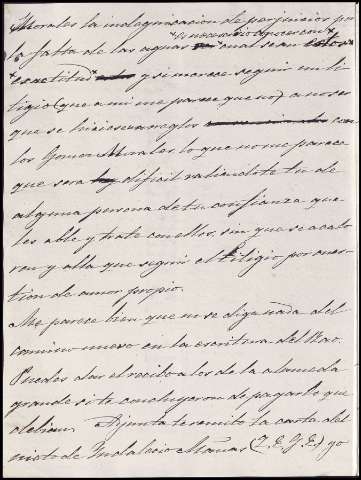 Morales la indegnizacion de perjuicios por
es necesario conocer con
la falta de las aguas cual sean estos
exactitud y si merece seguir mi li
tigio (que a mi me parece que no) a no ser
que se hiciese un arreglo con
los Gomez Morales lo que no me parece
que sera dificil valiendote tu de
alguna persona de tu confianza que
les able y trate con ellos, sin que se acalo
ren y alla que seguir el litigio por cues
tion de amor propio.
Me parece bien que no se diga nada del
camino nuevo en la escritura del Bao.
Puedes dar el recibo a los de la alameda
grande si te concluyeron de pagar lo que
debian. Adjunta te remito la carta del
nieto de Indalecio Mañas (Q.E.G.E) yo